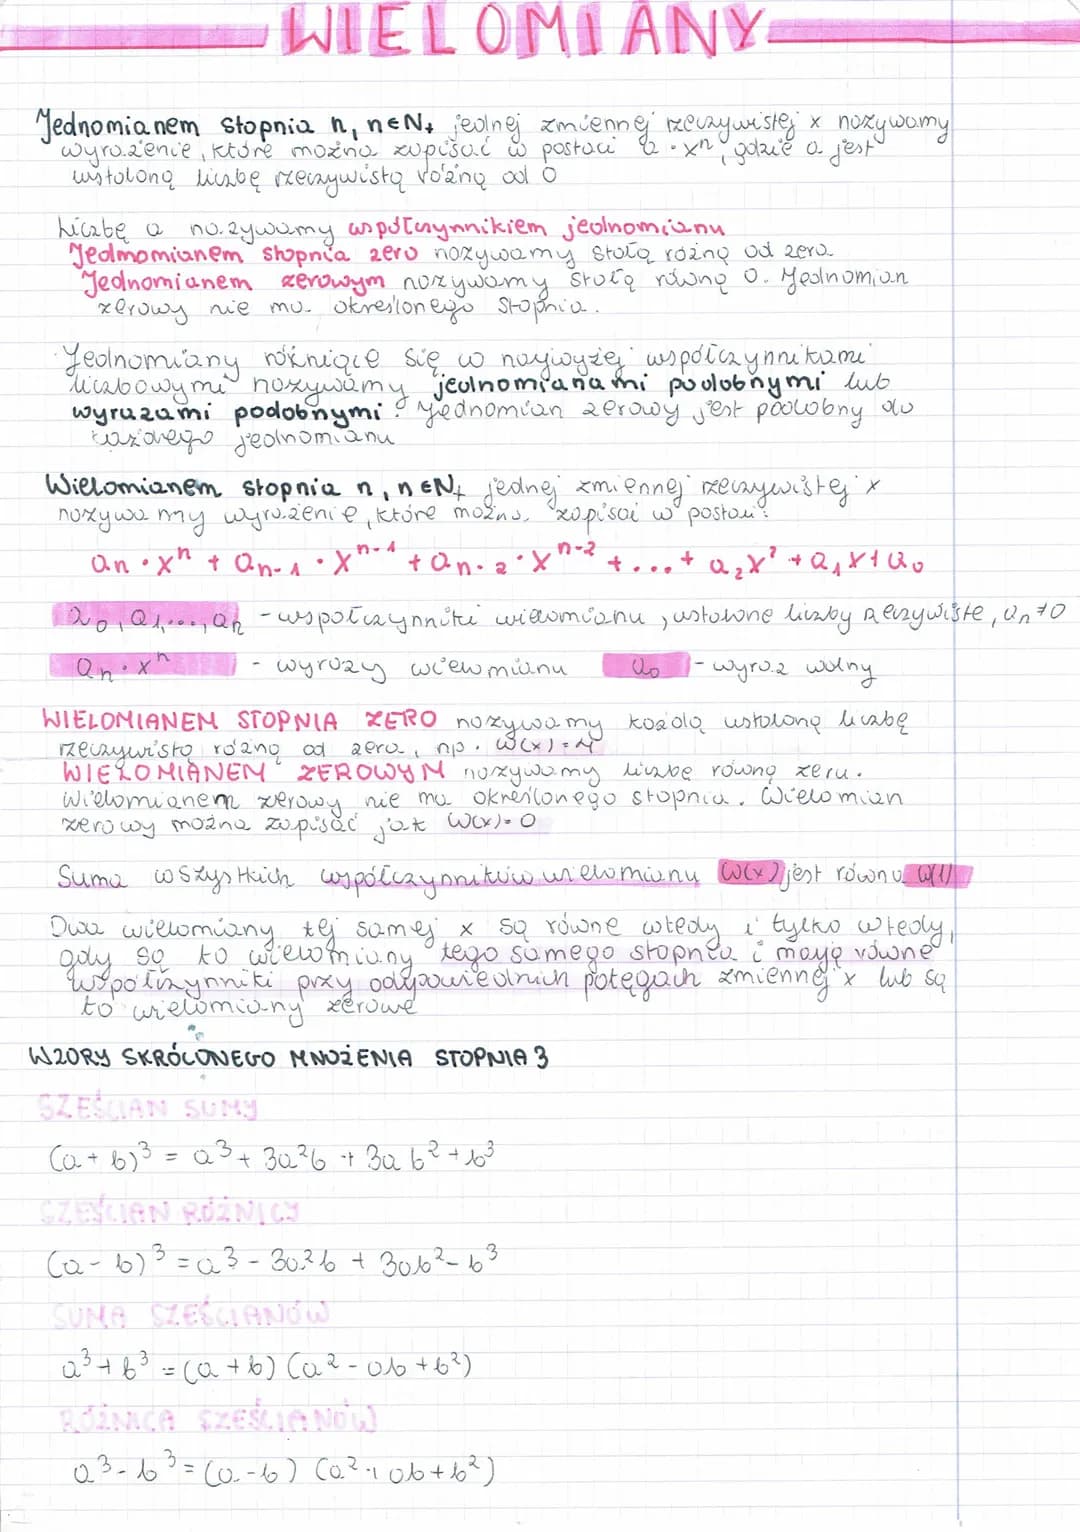 WIELOMIANY
Jednomianem stopnia n, n∈N₊ jednej zmiennej rzeczywistej x nazywamy
wyrażenie, które można zapisać w postaci a · xⁿ, gdzie a jest
ustaloną liczbę rzeczywistą różną od 0
Liczbę a nazywamy współczynnikiem jednomianu
Jedmomianem stopnia zero nazywamy stałą różną od zera
Jednomianem zerowym nazywamy stałą równą 0. Jednomian
zerowy nie ma określonego stopnia.
Jednomiany różniące się co najwyżej współczynnikami
liczbowymi nazywamy jednomianami podobnymi lub
wyrazami podobnymi. Jednomian zerowy jest podobny do
każdego jednomianu
Wielomianem stopnia n, n∈N₊ jednej zmiennej rzeczywistej x
nazywamy wyrażenie, które można zapisać w postaci:
aₙ · xⁿ + aₙ₋₁ · xⁿ⁻¹ + aₙ₋₂ · xⁿ⁻² + ... + a₂x² + a₁x + a₀
a₀, a₁, ..., aₙ - współczynniki wielomianu, ustalone liczby rzeczywiste, aₙ ≠ 0
aₙ · xⁿ - wyrazy wielomianu a₀ - wyraz wolny
WIELOMIANEM STOPNIA ZERO nazywamy każdą ustaloną liczbę
rzeczywistą różną od zera, np. W(x) = 4
WIELOMIANEM ZEROWYM nazywamy liczbę równą zeru.
Wielomianem zerowy nie ma określonego stopnia. Wielomian
zerowy można zapisać jak W(x) = 0
Suma wszystkich współczynników wielomianu W(x) jest równa W(1)
Dwa wielomiany tej samej x są równe wtedy i tylko wtedy,
gdy są to wielomiany tego samego stopnia i mają równe
współczynniki przy odpowiednich potęgach zmiennej x lub są
to wielomiany zerowe
WZORY SKRÓCONEGO MNOŻENIA STOPNIA 3
SZEŚCIAN SUMY
(a + b)³ = a³ + 3a²b + 3ab² + b³
SZEŚCIAN RÓŻNICY
(a - b)³ = a³ - 3a²b + 3ab² - b³
SUMA SZEŚCIANÓW
a³ + b³ = (a + b) (a² - ab + b²)
RÓŻNICA SZEŚCIANÓW
a³ - b³ = (a - b) (a² + ab + b²)